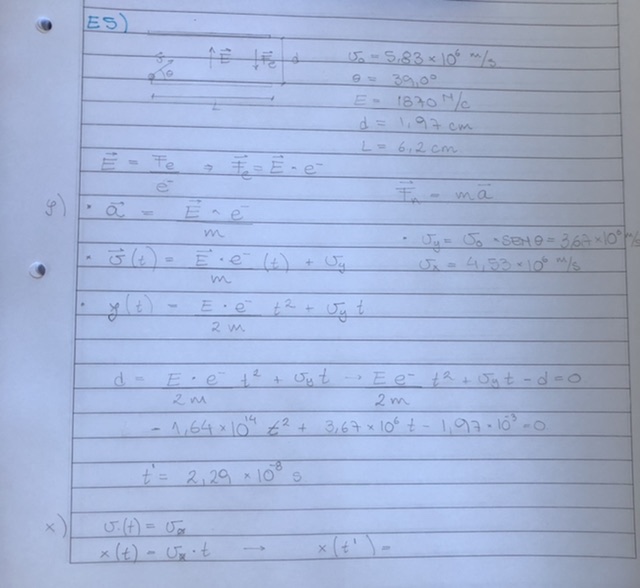 E5)
E⃗ F⃗e d
θ
L
v₀ = 5,83 × 10⁶ m/s
θ = 39,0°
E = 1870 N/C
d = 1,97 cm
L = 6,2 cm
E⃗ = Fe/e⁻ → F⃗e = E⃗ · e⁻
F⃗n = ma⃗
y) • a⃗ = E⃗ · e⁻ / m
• vy = v₀ · sen θ = 3,67 × 10⁶ m/s
vx = 4,53 × 10⁶ m/s
• v⃗(t) = E⃗ · e⁻ / m (t) + vy
• y(t) = E · e⁻ / 2m t² + vy t
d = E · e⁻ / 2m t² + vy t → E e⁻ / 2m t² + vy t - d = 0
- 1,64 × 10¹⁴ t² + 3,67 × 10⁶ t - 1,97 · 10⁻³ = 0
t' = 2,29 × 10⁻⁸ s
x) v(t) = vx
x(t) = vx · t → x(t') =